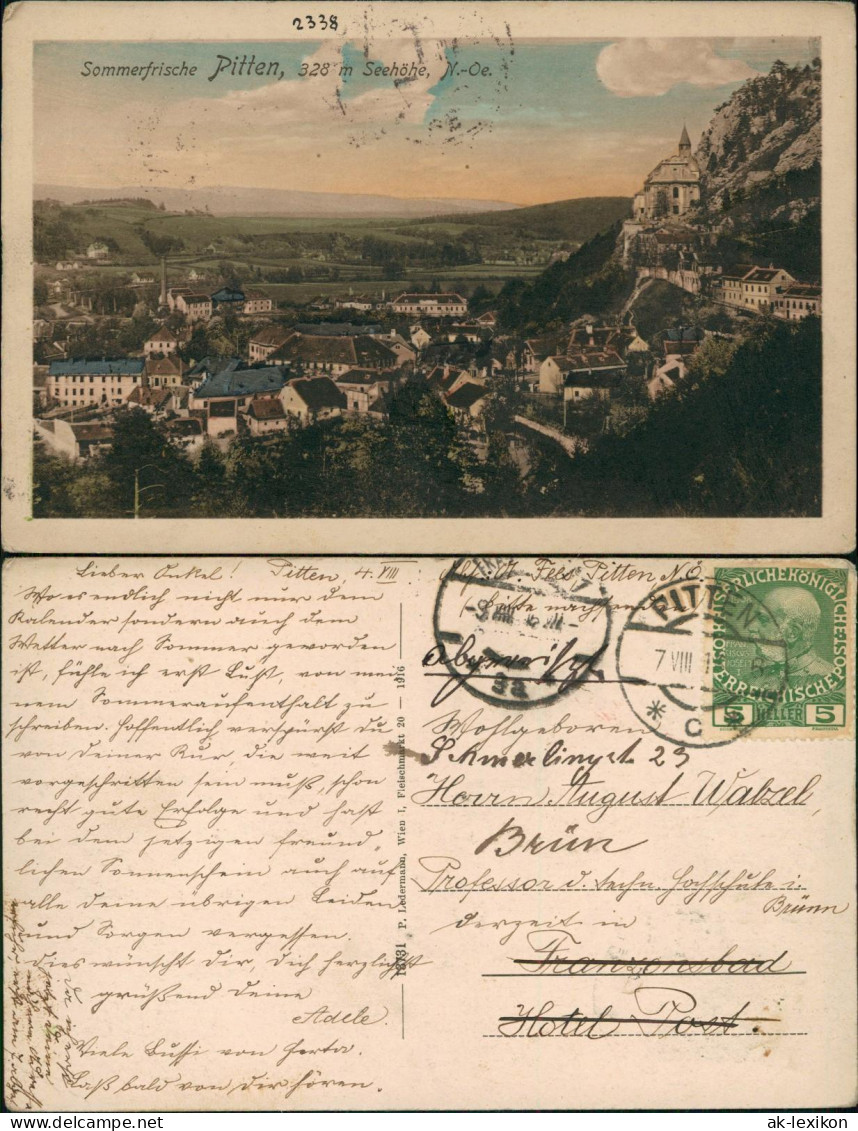 2338
Sommerfrische Pitten, 328 m Seehöhe, N.-Oe.
Lieber Onkel! Pitten, 4. VIII
Wo es endlich nicht nur dem
Kalender sondern auch dem
Wetter nach Sommer geworden
ist, fühle ich erst Lust, von mei
nem Sommeraufenthalt zu
schreiben. Hoffentlich verspürst du
von deiner Kur, die weit
vorgeschritten sein muß, schon
recht gute Erfolge und hast
bei dem jetzigen freund,
lichen Sonnenschein auch auf
alle deine übrigen Leiden
und Sorgen vergessen.
Dies wünscht dir, dich herzlichst
grüßend deine
Adele.
Viele Bussi von Herta.
Laß bald von dir hören.
18731 P. Ledermann, Wien I, Fleischmarkt 20 — 1916
Pitten, N.Ö.
abgereist
3a
PITTEN
7 VIII
* C
KAISERLICHE KÖNIGLICHE
ÖSTERREICHISCHE POST
5 HELLER 5
Wohlgeboren
Schmerlingst 23
Herrn August Walzel,
Brün
Professor d. techn. Hochschule i.
Brünn
derzeit in
Franzensbad
Hotel Post.
www.ansichtskarten-lexikon.de
ak-lexikon